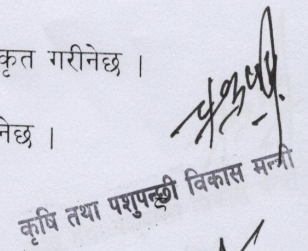 कृत गरीनेछ ।
नेछ ।
कृषि तथा पशुपन्छी विकास मन्त्री